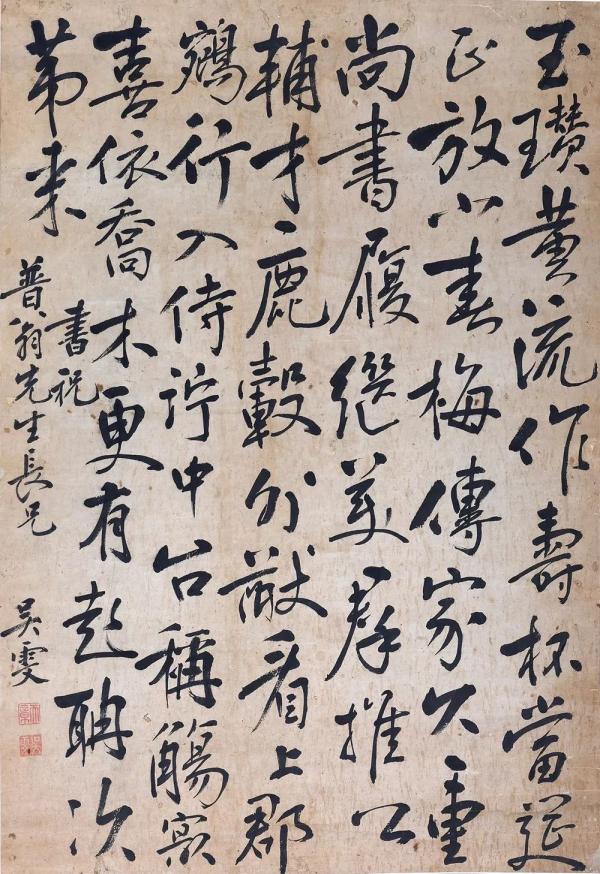 玉瓚黄流作壽杯當筵
正放小春梅傳家久重
尚書履繼美群推公
輔才鹿轂外猷看上郡
鵷行入侍竚中台稱觴實
喜依喬木更有聃次
第来
書祝
普翁先生長兄
吴雯